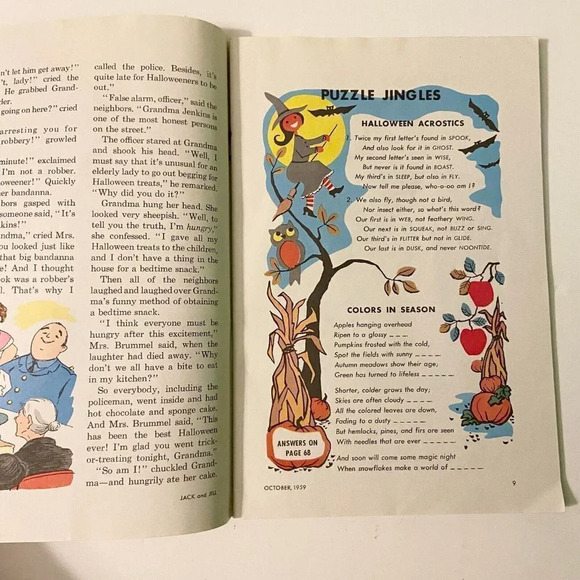 n't let him get away!"
't, lady!" cried the
He grabbed Grand-
der.
going on here?" cried
arresting you for
robbery!" growled
minute!" exclaimed
I'm not a robber.
oweener!" Quickly
er bandanna.
bors gasped with
someone said, "It's
nkins!"
ndma," cried Mrs.
You looked just like
that big bandanna
e! And I thought
ook was a robber's
l. That's why I
called the police. Besides, it's
quite late for Halloweeners to be
out."
"False alarm, officer," said the
neighbors. "Grandma Jenkins is
one of the most honest persons
on the street."
The officer stared at Grandma
and shook his head. "Well, I
must say that it's unusual for an
elderly lady to go out begging for
Halloween treats," he remarked.
"Why did you do it?"
Grandma hung her head. She
looked very sheepish. "Well, to
tell you the truth, I'm hungry,"
she confessed. "I gave all my
Halloween treats to the children,
and I don't have a thing in the
house for a bedtime snack."
Then all of the neighbors
laughed and laughed over Grand-
ma's funny method of obtaining
a bedtime snack.
"I think everyone must be
hungry after this excitement,"
Mrs. Brummel said, when the
laughter had died away. "Why
don't we all have a bite to eat
in my kitchen?"
So everybody, including the
policeman, went inside and had
hot chocolate and sponge cake.
And Mrs. Brummel said, "This
has been the best Halloween
ever! I'm glad you went trick-
or-treating tonight, Grandma."
"So am I!" chuckled Grand-
ma—and hungrily ate her cake.
JACK and JILL
PUZZLE JINGLES
HALLOWEEN ACROSTICS
1. Twice my first letter's found in SPOOK,
And also look for it in GHOST.
My second letter's seen in WISE,
But never is it found in BOAST.
My third's in SLEEP, but also in FLY.
Now tell me please, who-o-oo am I?
2. We also fly, though not a bird,
Nor insect either, so what's this word?
Our first is in WEB, not feathery WING.
Our next is in SQUEAK, not BUZZ or SING.
Our third's in FLITTER but not in GLIDE.
Our last is in DUSK, and never NOONTIDE.
COLORS IN SEASON
Apples hanging overhead
Ripen to a glossy _ _ _
Pumpkins frosted with the cold,
Spot the fields with sunny _ _ _ _
Autumn meadows show their age;
Green has turned to lifeless _ _ _ _ _
Shorter, colder grows the day;
Skies are often cloudy _ _ _ _
All the colored leaves are down,
Fading to a dusty _ _ _ _ _
But hemlocks, pines, and firs are seen
With needles that are ever _ _ _ _ _
And soon will come some magic night
When snowflakes make a world of _ _ _ _ _
ANSWERS ON
PAGE 68
OCTOBER, 1959
9